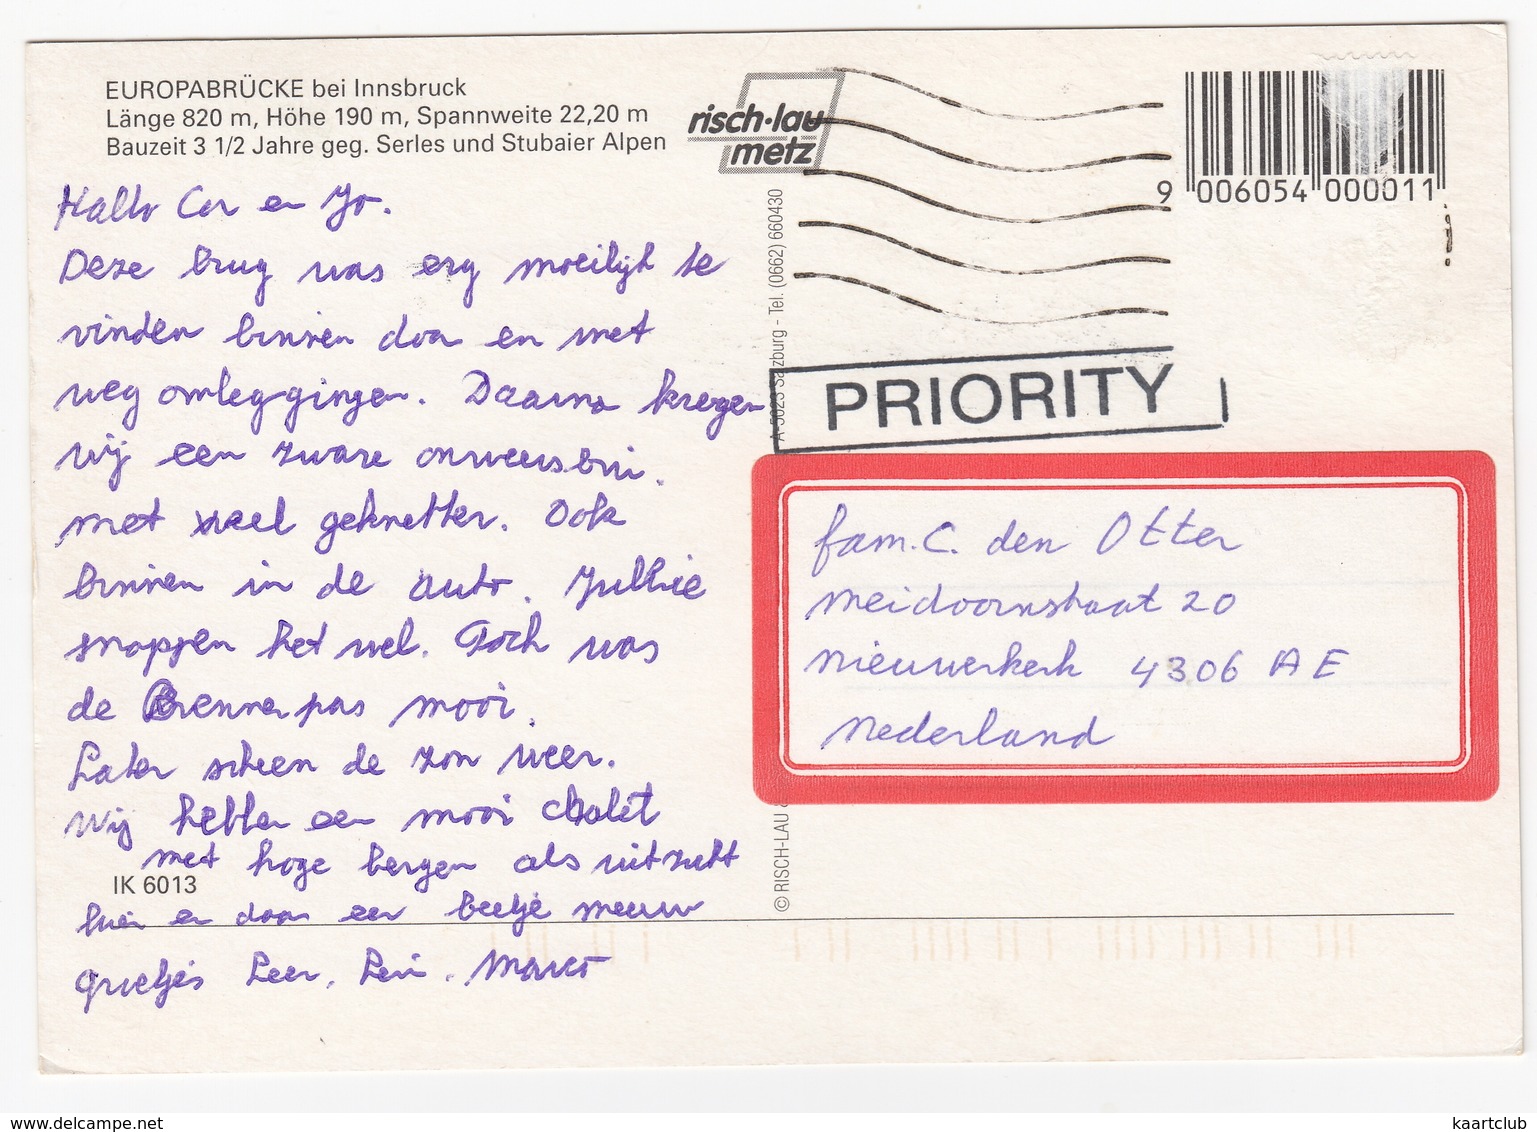 EUROPABRÜCKE bei Innsbruck
Länge 820 m, Höhe 190 m, Spannweite 22,20 m
Bauzeit 3 1/2 Jahre geg. Serles und Stubaier Alpen
risch·lau
metz
9 006054 000011
Hallo Cor en Jo.
Deze brug was erg moeilijk te
vinden binnen door en met
weg omleggingen. Daarna kregen
wij een zware onweersbui.
met veel geknetter. Ook
binnen in de auto. Jullie
snappen het wel. Toch was
de Brennerpas mooi.
Later scheen de zon weer.
Wij hebben een mooi chalet
met hoge bergen als uitzicht
hier en daar een beetje sneeuw
groetjes Leen, Leni, Marco
IK 6013
A-5023 Salzburg - Tel. (0662) 660430
© RISCH-LAU
PRIORITY
fam. C. den Otter
Meidoornstraat 20
Nieuwerkerk 4306 AE
Nederland
www.delcampe.net
kaartclub